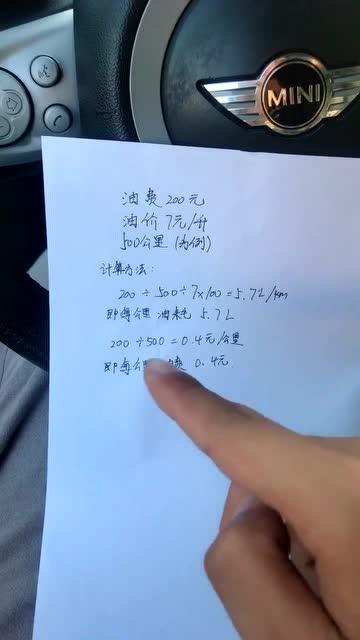 MINI
油费200元
油价7元/升
500公里(为例)
计算方法:
200÷500÷7×100=5.7L/km
即每公里 油耗 5.7L
200÷500=0.4元/公里
即每公 费 0.4元